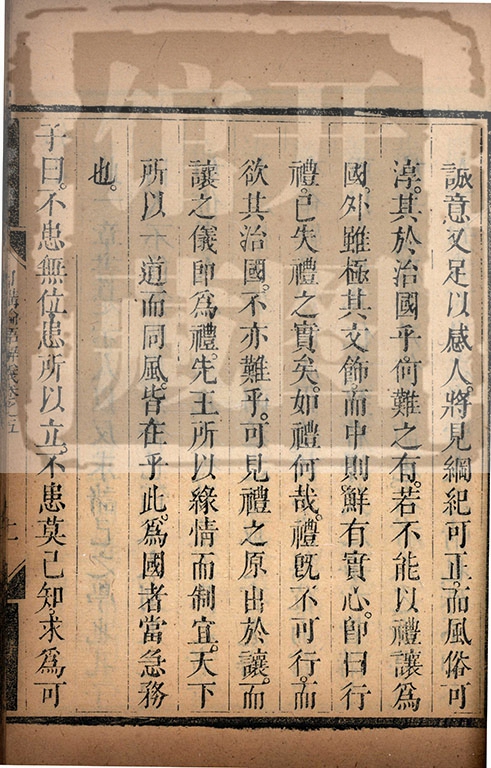 誠意又足以感人。將見綱紀可正。而風俗可
淳。其於治國乎。何難之有。若不能以禮讓為
國。外雖極其文飾。而中則鮮有實心。即曰行
禮。已失禮之實矣。如禮何哉。禮既不可行。而
欲其治國。不亦難乎。可見禮之原出於讓。而
讓之儀即為禮。先王所以緣情而制宜。天下
所以一道而同風。皆在乎此。為國者當急務
也。
子曰。不患無位。患所以立。不患莫己知。求為可